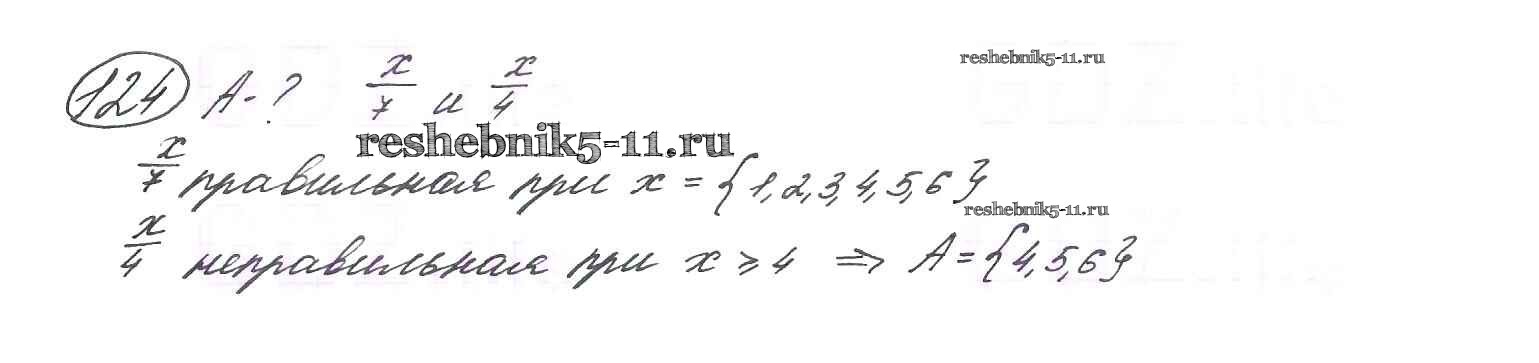 reshebnik5-11.ru
124 А-? x/7 и x/4
reshebnik5-11.ru
x/7 правильная при x = {1,2,3,4,5,6}
reshebnik5-11.ru
x/4 неправильная при x ⩾ 4 ⇒ А = {4,5,6}